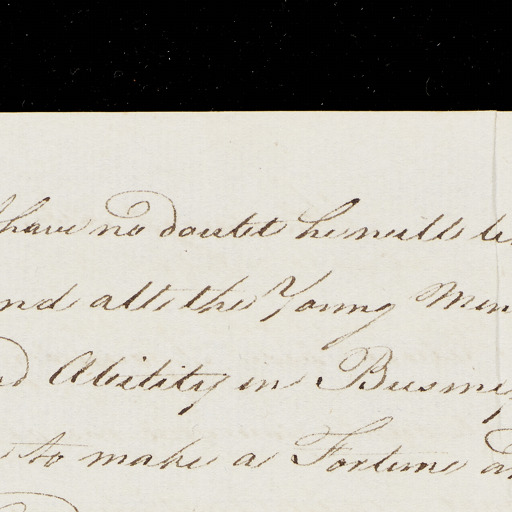 have no doubt he will be
nd all the Young Men
d Ability in Busines
to make a Fortune an